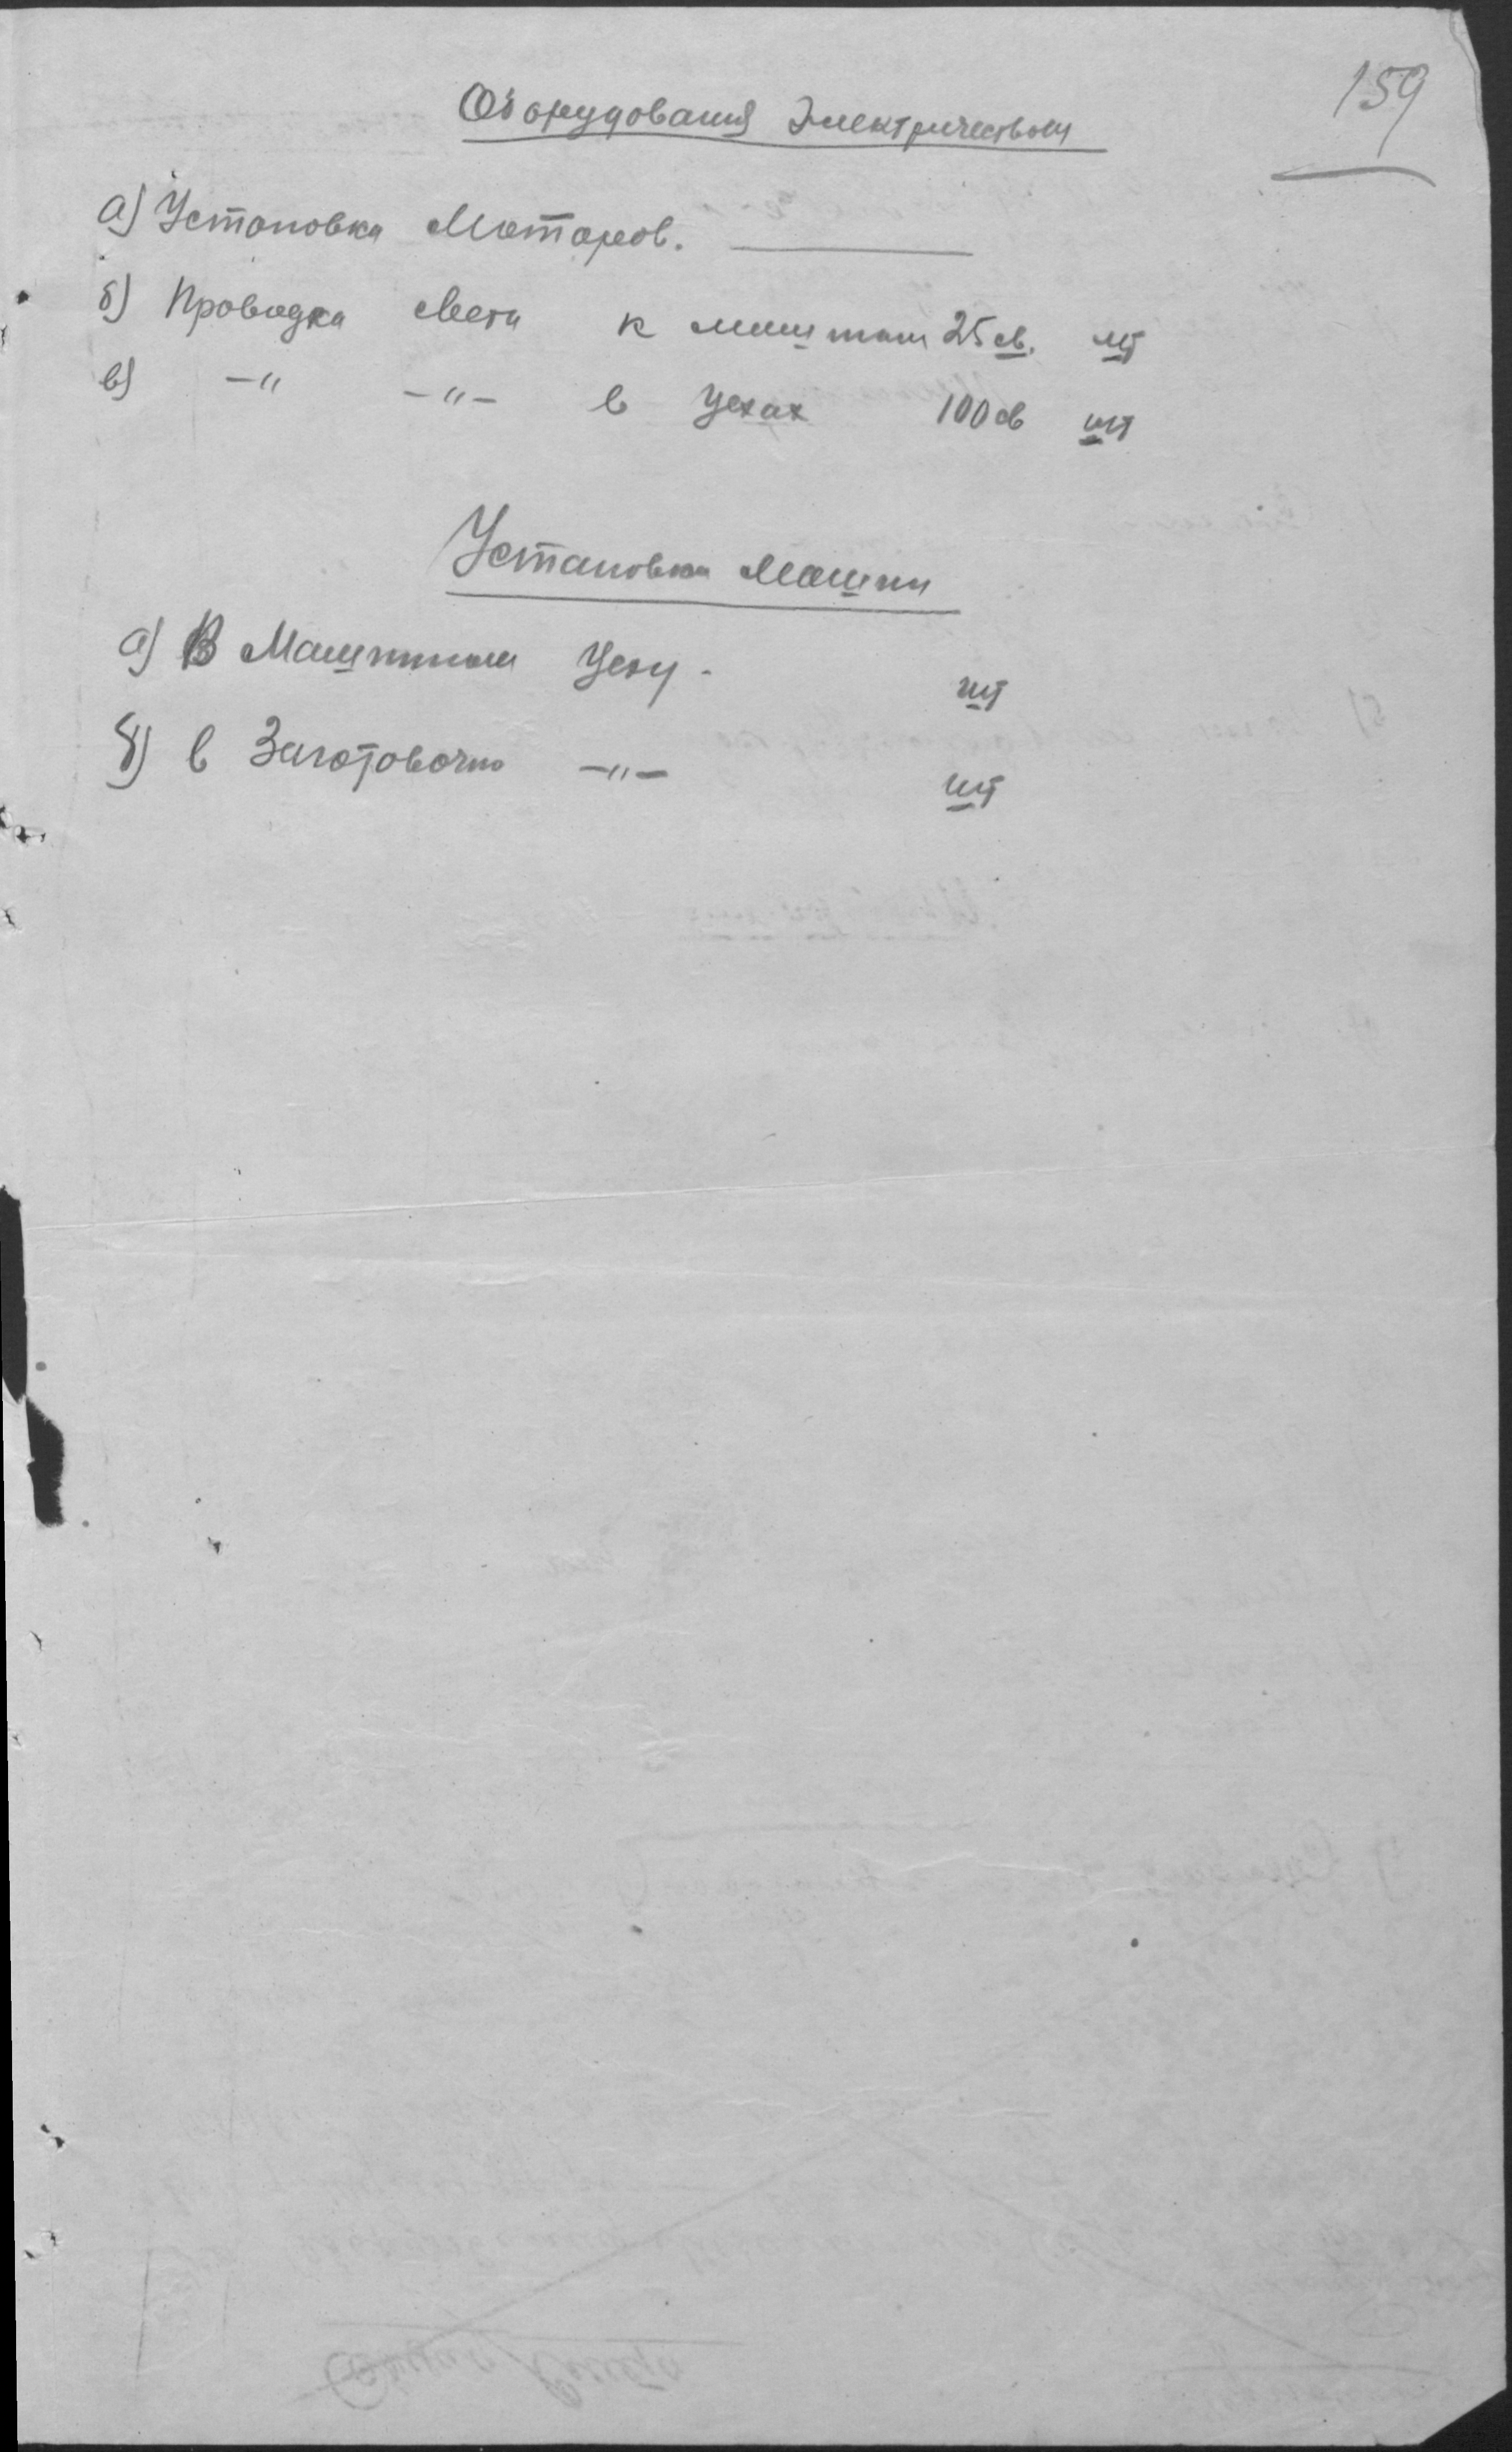 159
Оборудования Электричеством
а) Установка Моторов.
б) Проводка света к машинам 25 св. шт
в) -"- -"- в цехах 100 св шт
Установка Машин
а) В Машинном цеху - шт
б) в Заготовочно -"- шт